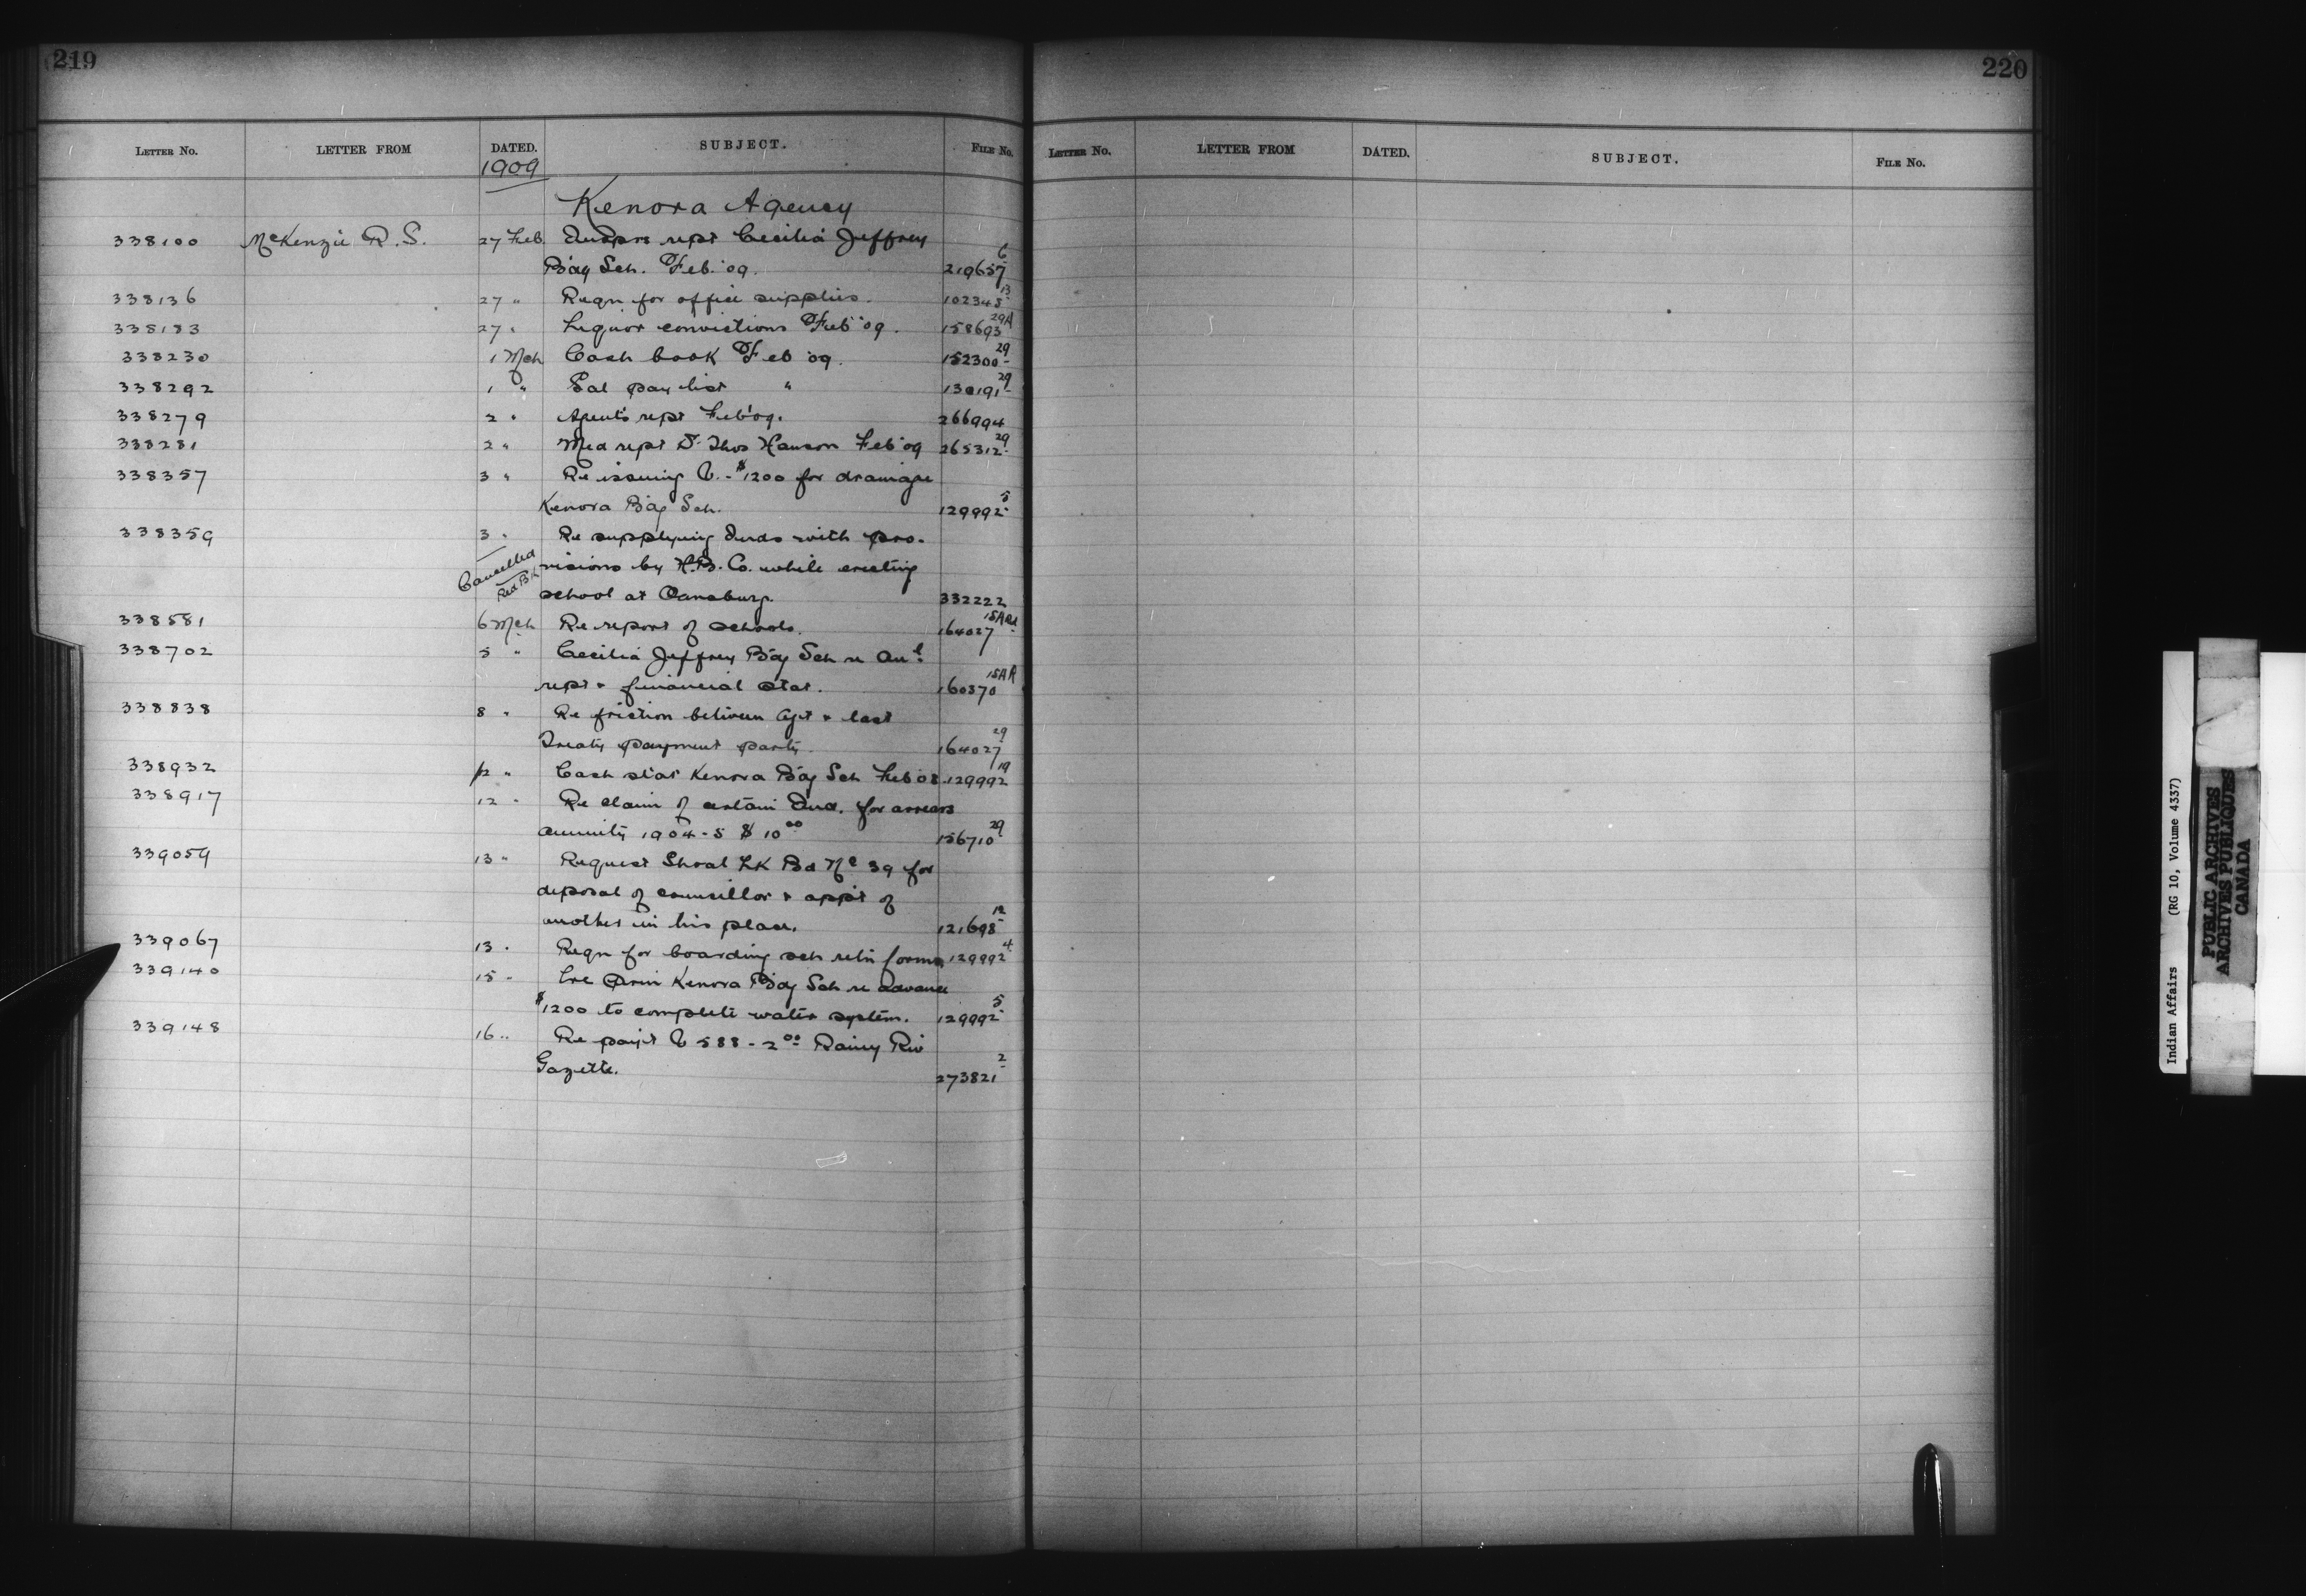 219
LETTER No. LETTER FROM DATED. SUBJECT. FILE No.
1909
Kenora Agency
338100 McKenzie R. S. 27 Feb. Indprs rept Cecilia Jeffrey
Bdg Sch. Feb. '09. 219657 6
338136 27 " Reqn for office supplies. 102348 13
338183 27 " Liquor convictions Feb '09. 158693 29A
338230 1 Mch Cash book Feb '09. 152300 29
338292 1 " Sal pay list " 130191 29
338279 2 " Agents rept Feb '09. 266994
338281 2 " Med rept Dr Thos Hanson Feb '09 265312 29
338357 3 " Re issuing V. - $1200 for drainage
Kenora Bdg Sch. 129992 5
338359 3 " Re supplying Inds with pro-
Cancelled visions by H.B. Co. while erecting
Red Bk school at 332222
338581 6 Mch Re report of schools. 164027 15A
338702 5 " Cecilia Jeffrey Bdg Sch re Anl
rept & financial stat. 160370 15AR
338838 8 " Re friction between Agt & last
Treaty payment party. 164027 29
338932 12 " Cash stat Kenora Bdg Sch Feb 08. 129992 19
338917 12 " Re claim of certain Ind. for arrears
annuity 1904-5 $10 00 156710 29
339059 13 " Request Shoal Lk Bd No 39 for
deposal of councillor & appt of
another in his place. 121698 12
339067 13 " Reqn for boarding sch retn forms 129992 4
339140 15 " Kenora Bdg Sch re advance
$1200 to complete water system. 129992 5
339148 16 " Re payt V 588 - 2 00 Rainy Riv
Gazette. 273821 2
220
LETTER No. LETTER FROM DATED. SUBJECT. FILE No.
Indian Affairs (RG 10, Volume 4337)
PUBLIC ARCHIVES
ARCHIVES PUBLIQUES
CANADA